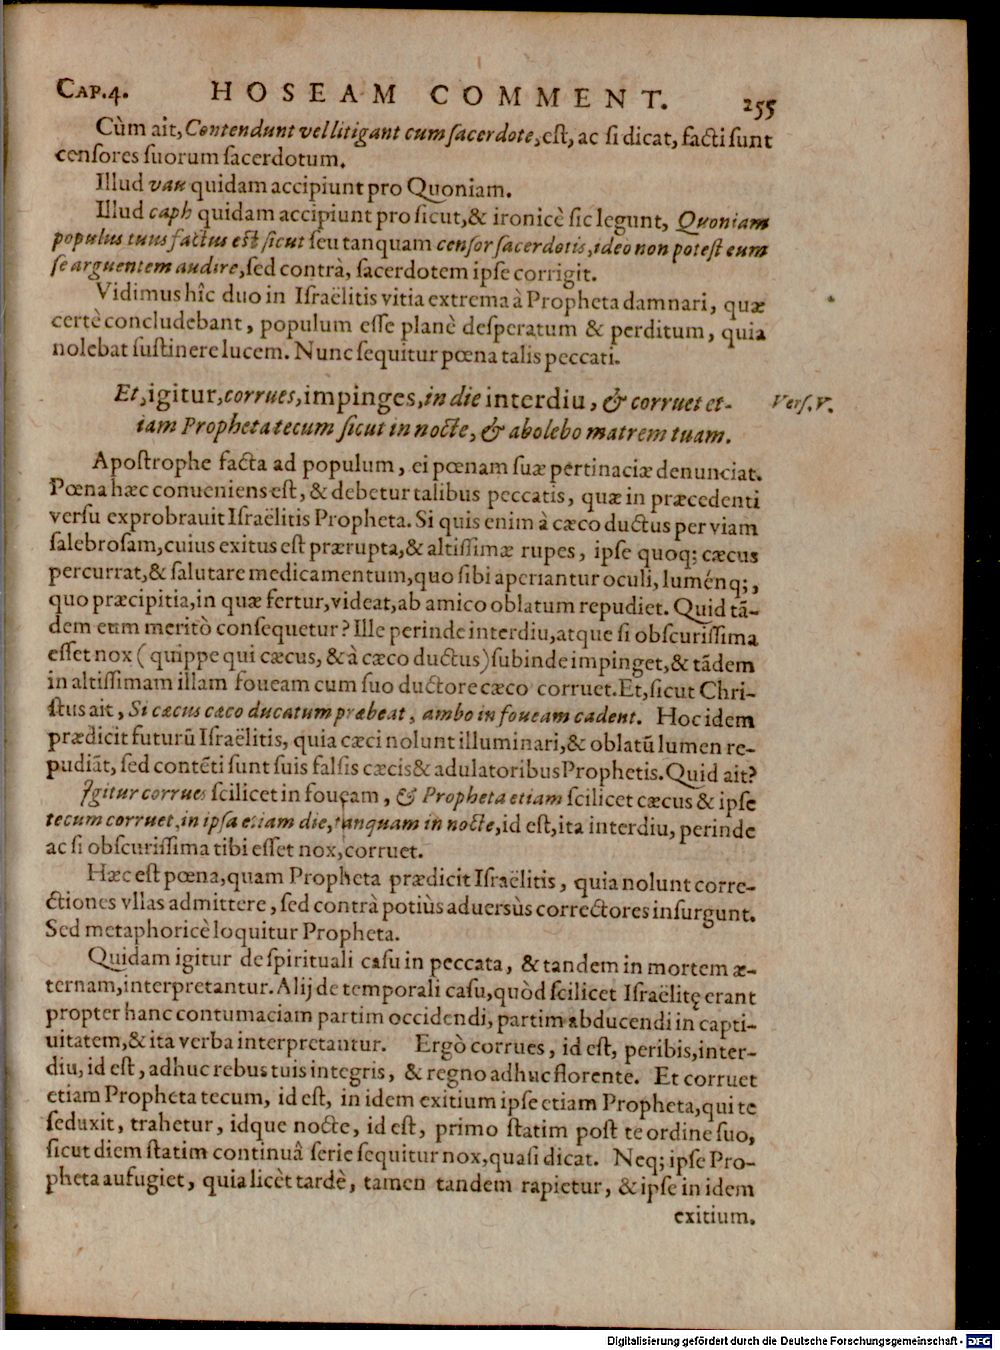 CAP. 4. HOSEAM COMMENT. 255
Cùm ait, Contendunt vel litigant cum sacerdote, est, ac si dicat, facti sunt
censores suorum sacerdotum.
Illud vau quidam accipiunt pro Quoniam.
Illud caph quidam accipiunt pro sicut, & ironicè sic legunt, Quoniam
populus tuus factus est sicut seu tanquam censor sacerdotis, ideo non potest eum
se arguentem audire, sed contrà, sacerdotem ipse corrigit.
Vidimus hîc duo in Israëlitis vitia extrema à Propheta damnari, quæ
certè concludebant, populum esse planè desperatum & perditum, quia
nolebat sustinere lucem. Nunc sequitur pœna talis peccati.
Et, igitur, corrues, impinges, in die interdiu, & corruet et- Vers. V.
iam Propheta tecum sicut in nocte, & abolebo matrem tuam.
Apostrophe facta ad populum, ei pœnam suæ pertinaciæ denunciat.
Pœna hæc conueniens est, & debetur talibus peccatis, quæ in præcedenti
versu exprobrauit Israëlitis Propheta. Si quis enim à cæco ductus per viam
salebrosam, cuius exitus est prærupta, & altissimæ rupes, ipse quoq; cæcus
percurrat, & salutare medicamentum, quo sibi aperiantur oculi, luménq;,
quo præcipitia, in quæ fertur, videat, ab amico oblatum repudiet. Quid tã-
dem eum meritò consequetur? Ille perinde interdiu, atque si obscurissima
esset nox (quippe qui cæcus, & à cæco ductus) subinde impinget, & tãdem
in altissimam illam foueam cum suo ductore cæco corruet. Et, sicut Chri-
stus ait, Si cæcus cæco ducatum præbeat, ambo in foueam cadent. Hoc idem
prædicit futurũ Israëlitis, quia cæci nolunt illuminari, & oblatũ lumen re-
pudiãt, sed contẽti sunt suis falsis cæcis & adulatoribus Prophetis. Quid ait?
Igitur corrues scilicet in foueam, & Propheta etiam scilicet cæcus & ipse
tecum corruet, in ipsa etiam die, tanquam in nocte, id est, ita interdiu, perinde
ac si obscurissima tibi esset nox, corruet.
Hæc est pœna, quam Propheta prædicit Israëlitis, quia nolunt corre-
ctiones vllas admittere, sed contrà potiùs aduersùs correctores insurgunt.
Sed metaphoricè loquitur Propheta.
Quidam igitur de spirituali casu in peccata, & tandem in mortem æ-
ternam, interpretantur. Alij de temporali casu, quòd scilicet Israëlitę erant
propter hanc contumaciam partim occidendi, partim abducendi in capti-
uitatem, & ita verba interpretantur. Ergò corrues, id est, peribis, inter-
diu, id est, adhuc rebus tuis integris, & regno adhuc florente. Et corruet
etiam Propheta tecum, id est, in idem exitium ipse etiam Propheta, qui te
seduxit, trahetur, idque nocte, id est, primo statim post te ordine suo,
sicut diem statim continuâ serie sequitur nox, quasi dicat. Neq; ipse Pro-
pheta aufugiet, quia licèt tardè, tamen tandem rapietur, & ipse in idem
exitium.
Digitalisierung gefördert durch die Deutsche Forschungsgemeinschaft - DFG